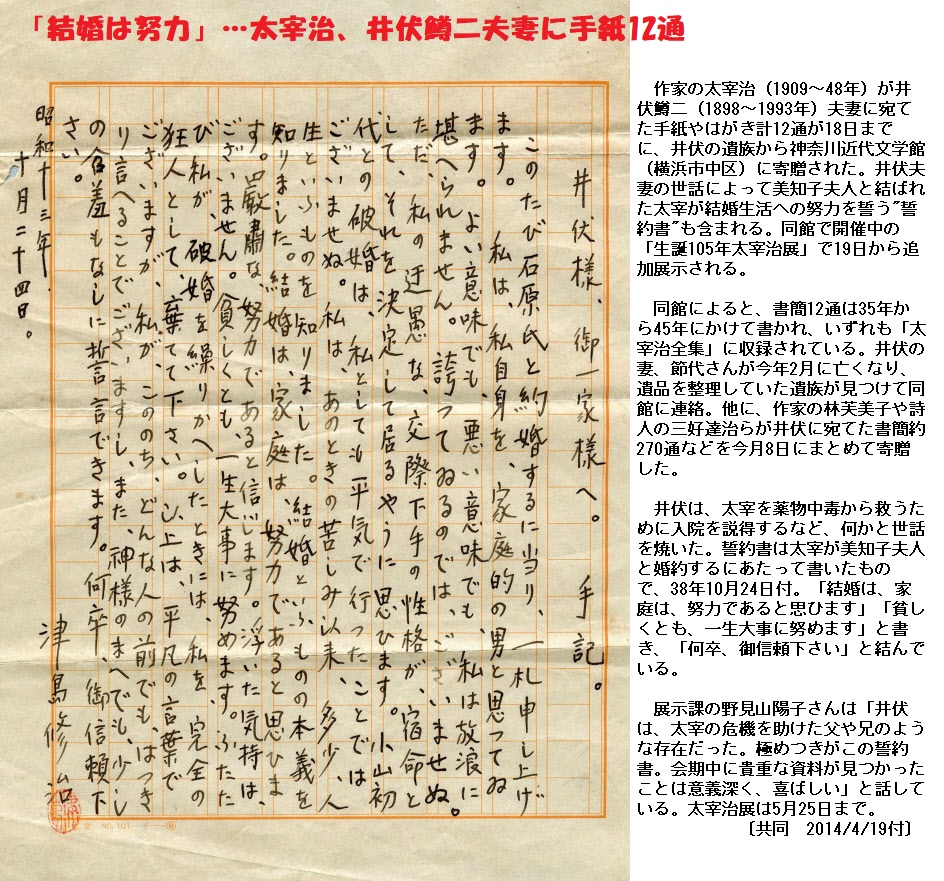 「結婚は努力」…太宰治、井伏鱒二夫妻に手紙12通
井伏様、御一家様へ。手記。
このたび石原氏と約婚するに当り、一札申し上げ
ます。私は、私自身を、家庭的の男と思つてゐ
ます。よい意味でも、悪い意味でも、私は放浪に
堪へられません。誇つてゐるのでは、ございませぬ。
ただ、私の迂愚な、交際下手の性格が、宿命と
して、それを決定して居るやうに思ひます。小山初
代との破婚は、私としても平気で行つたことでは
ございませぬ。私は、あのときの苦しみ以来、多少、人
生といふものを知りました。結婚といふものの本義を
知りました。結婚は、家庭は、努力であると思ひま
す。嚴肅な、努力であると信じます。浮いた気持は、
ございません。貧しくとも、一生大事に努めます。ふたた
び私が、破婚を繰りかへしたときには、私を、完全の
狂人として、棄てて下さい。以上は、平凡の言葉で
ございますが、私が、こののち、どんな人の前でも、はつき
り言へることでございますし、また、神様のまへでも、少し
の含羞もなしに誓言できます。何卒、御信頼下
さい。
昭和十三年、
十月二十四日。
津島修治
NO.101
作家の太宰治（1909～48年）が井
伏鱒二（1898～1993年）夫妻に宛て
た手紙やはがき計12通が18日まで
に、井伏の遺族から神奈川近代文学館
（横浜市中区）に寄贈された。井伏夫
妻の世話によって美知子夫人と結ばれ
た太宰が結婚生活への努力を誓う"誓
約書"も含まれる。同館で開催中の
「生誕105年太宰治展」で19日から追
加展示される。
同館によると、書簡12通は35年か
ら45年にかけて書かれ、いずれも「太
宰治全集」に収録されている。井伏の
妻、節代さんが今年2月に亡くなり、
遺品を整理していた遺族が見つけて同
館に連絡。他に、作家の林芙美子や詩
人の三好達治らが井伏に宛てた書簡約
270通などを今月8日にまとめて寄贈
した。
井伏は、太宰を薬物中毒から救うた
めに入院を説得するなど、何かと世話
を焼いた。誓約書は太宰が美知子夫人
と婚約するにあたって書いたもの
で、38年10月24日付。「結婚は、家
庭は、努力であると思ひます」「貧し
くとも、一生大事に努めます」と書
き、「何卒、御信頼下さい」と結んで
いる。
展示課の野見山陽子さんは「井伏
は、太宰の危機を助けた父や兄のよう
な存在だった。極めつきがこの誓約
書。会期中に貴重な資料が見つかった
ことは意義深く、喜ばしい」と話して
いる。太宰治展は5月25日まで。
〔共同　2014/4/19付〕